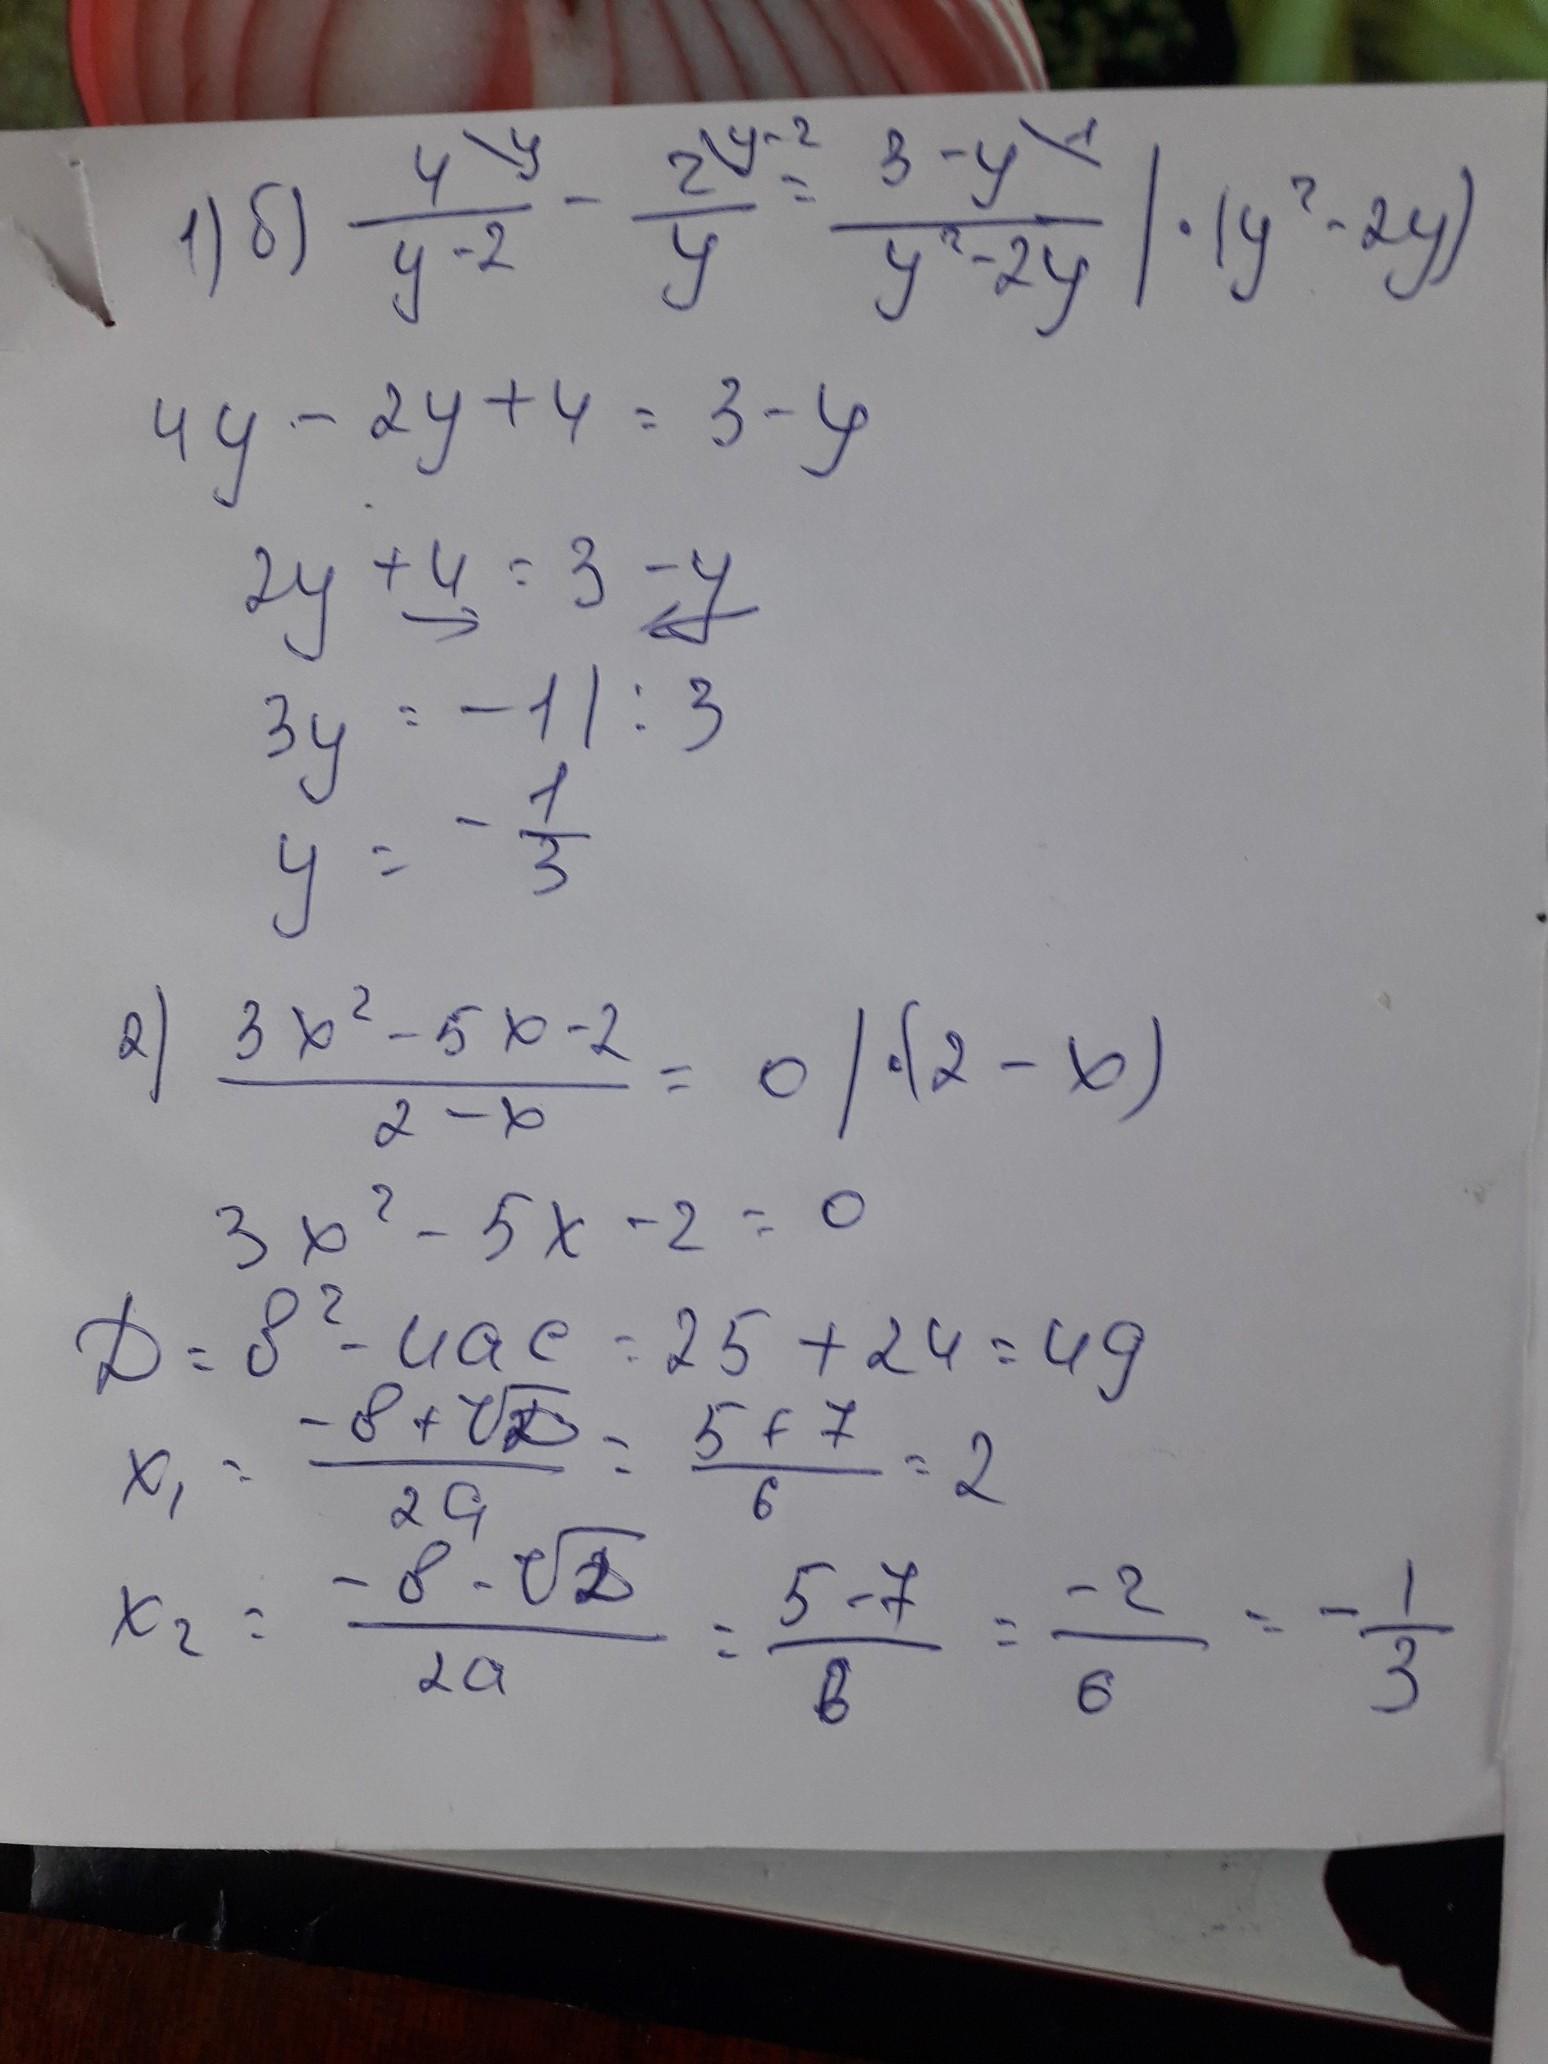 1) б) 4\y / (y-2) - 2\y-2 / y = 3-y\1 / (y²-2y) | · (y²-2y)
4y - 2y + 4 = 3 - y
2y + 4 = 3 - y
3y = -1 | : 3
y = -1/3
2) (3x² - 5x - 2) / (2 - x) = 0 | · (2 - x)
3x² - 5x - 2 = 0
D = в² - 4ac = 25 + 24 = 49
x₁ = (-в + √D) / 2a = (5 + 7) / 6 = 2
x₂ = (-в - √D) / 2a = (5 - 7) / 6 = -2/6 = -1/3